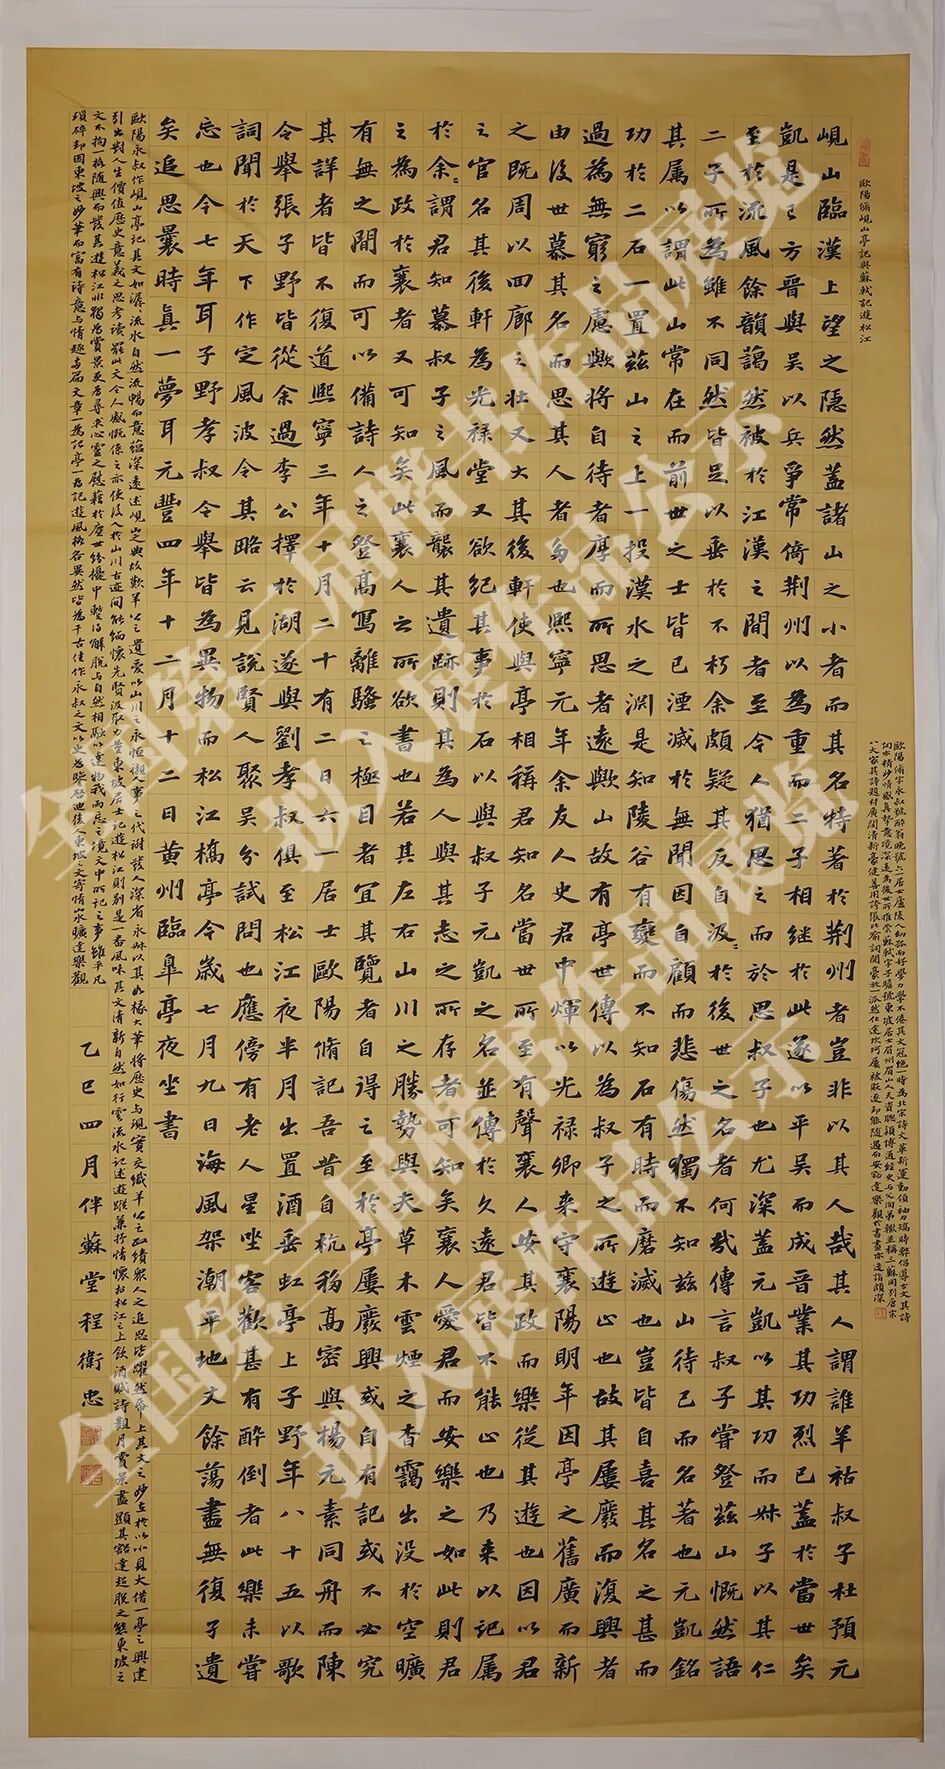 歐陽脩峴山亭記與蘇軾記遊松江
歐陽脩字永叔號醉翁晚號六一居士盧陵人幼孤而好學力學不倦其文冠絕一時為北宋詩文革新運動領袖力矯時弊倡導古文其詩
詞亦精妙情感真摯意境深遠為後世所推崇蘇軾字子瞻號東坡居士眉州眉山人天資聰穎博通經史與父洵弟轍並稱三蘇同列唐宋
八大家其詩題材廣闊清新豪健善用誇張比喻詞開豪放一派然仕途坎坷屢被貶逐卻能隨遇而安豁達樂觀於書畫亦造詣頗深
峴山臨漢上望之隱然蓋諸山之小者而其名特著於荆州者豈非以其人哉其人謂誰羊祜叔子杜預元
凱是已方晉與吳以兵爭常倚荆州以為重而二子相繼於此遂以平吳而成晉業其功烈已蓋於當世矣
至於流風餘韻藹然被於江漢之間者至今人猶思之而於思叔子也尤深蓋元凱以其功而叔子以其仁
二子所為雖不同然皆足以垂於不朽余頗疑其反自汲〻於後世之名者何哉傳言叔子嘗登茲山慨然語
其属以謂此山常在而前世之士皆已湮滅於無聞因自顧而悲傷然獨不知茲山待己而名著也元凱銘
功於二石一置茲山之上一投漢水之淵是知陵谷有變而不知石有時而磨滅也豈皆自喜其名之甚而
過為無窮之慮歟將自待者厚而所思者遠歟山故有亭世傳以為叔子之所遊止也故其屢廢而復興者
由後世慕其名而思其人者多也熙寧元年余友人史君中煇以光祿卿來守襄陽明年因亭之舊廣而新
之既周以回廊之壯又大其後軒使與亭相稱君知名當世所至有聲襄人安其政而樂從其遊也因以君
之官名其後軒為光祿堂又欲紀其事於石以與叔子元凱之名並傳於久遠君皆不能止也乃來以記属
於余〻謂君知慕叔子之風而襲其遺跡則其為人與其志之所存者可知矣襄人愛君而安樂之如此則君
之為政於襄者又可知矣此襄人之所欲書也若其左右山川之勝勢與夫草木雲煙之杳靄出沒於空曠
有無之間而可以備詩人之登高寫離騷之極目者宜其覽者自得之至於亭屢廢興或自有記或不必究
其詳者皆不復道熙寧三年十月二十有二日六一居士歐陽脩記吾昔自杭移高密與楊元素同舟而陳
令舉張子野皆從余過李公擇於湖遂與劉孝叔俱至松江夜半月出置酒垂虹亭上子野年八十五以歌
詞聞於天下作定風波令其略云見說賢人聚吳分試問也應傍有老人星坐客歡甚有醉倒者此樂未嘗
忘也今七年耳子野孝叔令舉皆為異物而松江橋亭今歲七月九日海風架潮平地丈餘蕩盡無復孑遺
矣追思曩時真一夢耳元豐四年十二月十二日黃州臨皋亭夜坐書
歐陽永叔作峴山亭記其文如潺〻流水自然流暢而意蘊深遠述峴山之興廢歎羊公之遺愛以山川之永恒襯人事之代謝發人深省永叔以其如椽大筆將歷史與現實交織羊公之政績眾人之追思皆躍然紙上其文之妙在於以小見大借一亭之興建
引出對人生價值歷史意義之思考讀罷此文令人感慨係之亦使後人於山川古迹間能緬懷先賢汲取力量東坡居士記遊松江則別是一番風味其文清新自然如行雲流水記述遊蹤兼抒情懷於松江之上飲酒賦詩觀月賞景盡顯其豁達超脫之態東坡之
文不拘一格隨興而發其遊松江非獨為賞景更為尋求心靈之慰藉於塵世紛擾中暫得解脫與自然相融以達物我兩忘之境文中所記之事雖平凡
瑣碎卻因東坡之妙筆而富有詩意與情趣兩篇文章一為記亭一為記遊風格各異然皆為千古佳作永叔之文以史為鑒啓迪後人東坡之文寄情山水曠達樂觀
乙巳四月伴蘇堂程衛忠
全国第三届楷书作品展览
拟入展作品公示
全国第三届楷书作品展览
拟入展作品公示